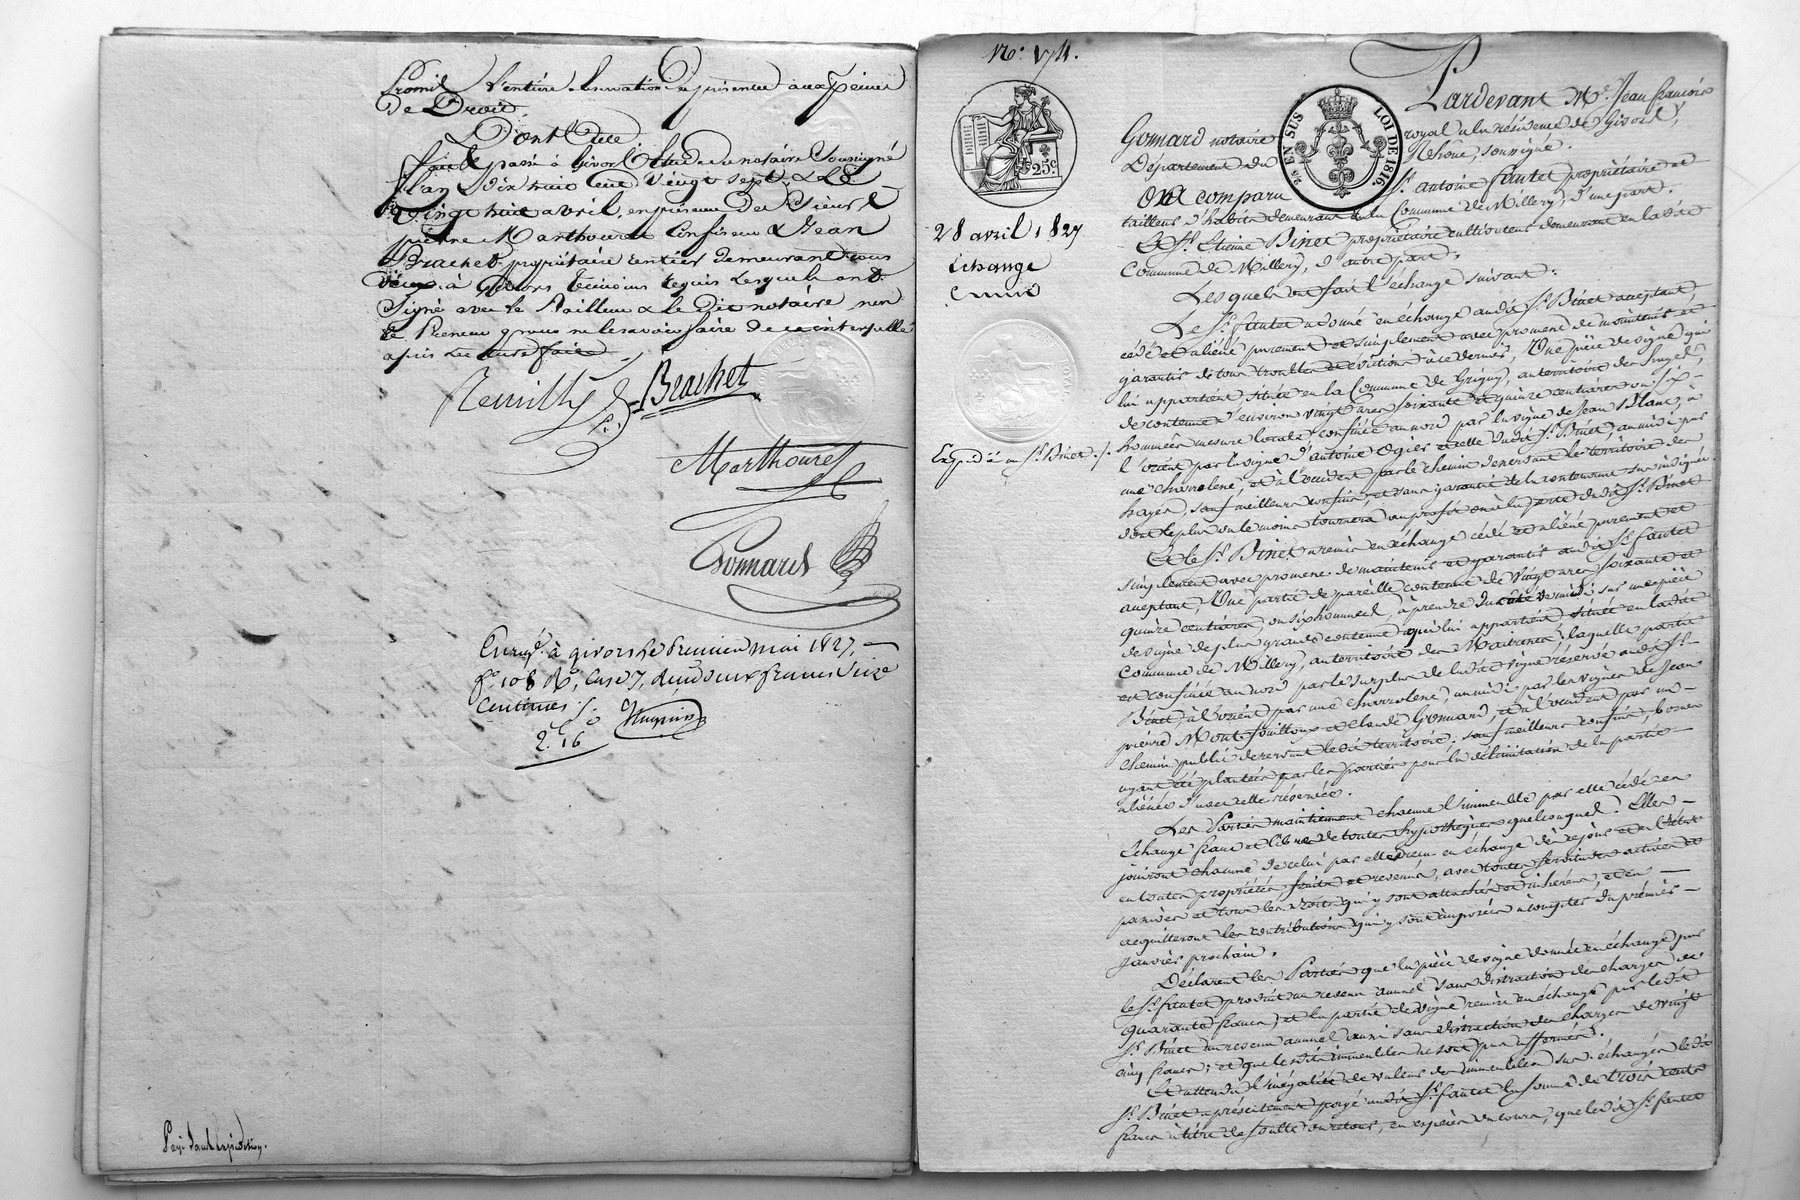 Promis l'entière observation du présentes aux peines
de Droit
Dont Acte
fait & passé à Givors Etude du notaire Soussigné
L'an Dix huit cent Vingt Sept & Le
Vingt huit avril, en présence des Sieurs
pierre Marthouret Confiseur & Jean
Brachet propriétaire rentier demeurant tous
deux à Givors témoins requis Lesquels ont
Signé avec le Bailleur & le Dit notaire non
le Preneur pour ne le savoir faire de ce interpellé
après Lecture faite
Brachet
Marthouret
Gonnard
Enregé à givors le Premier mai 1827,
fo 108 Ro, Case 7, reçu deux francs Seize
Centimes
2. 16
No. 174.
Pardevant Me. Jean francois
Gonnard notaire royal à la résidence de Givors,
Département du Rhône, soussigné.
2e. EN SUS LOI DE 1816.
25c.
Ont comparu Sr. antoine fautet propriétaire et
tailleur d'habits demeurant en la Commune de Millery, d'une part.
28 avril 1827
Echange
Et Sr. Etienne Binet propriétaire cultivateur demeurant en la dite
Commune de Millery, d'autre part.
Lesquels ont fait l'échange suivant:
Le Sr. fautet a donné en échange audit Sr. Binet acceptant,
cédé et aliéné purement et simplement avec promesse de maintenir et
garantir de tous troubles et évictions à ce dernier, Une pièce de vigne qui
lui appartient située en la Commune de Grigny, au territoire des
de contenue d'environ vingt ares soixante et quinze centiares ou six
hommées mesure locale, confinée au nord par la vigne de Jean Blanc, à
Expédié au Sr. Binet
l'orient par la vigne d'antoine Ogier et celle dudit Sr. Binet, au midi par
une charrolene, et à l'occident par le chemin desservant le territoire des
hayes, sauf meilleurs confins, et sans garantie de la contenance sus indiquée
dont le plus ou le moins tournera au profit ou à la perte dudit Sr. Binet
Et le Sr. Binet a remis en échange cédé et aliéné purement et
simplement avec promesse de maintenir et garantir audit Sr. fautet
acceptant, Une partie de pareille contenue de vingt ares soixante et
quinze centiares ou six hommées, à prendre du côté de midi sur une pièce
de vigne de plus grande contenue qui lui appartient située en la dite
Commune de Millery, au territoire des laquelle partie
est confinée au nord par le surplus de la dite vigne réservé audit Sr.
Binet, à l'orient par une charrolene, au midi par les vignes de Jean
pierre Montfouilloux et claude Gonnard, et à l'occident par un
chemin public desservant le dit territoire, sauf meilleurs confins; bornes
ayant été plantées par les parties pour la délimitation de la partie
aliénée d'avec celle réservée.
Les Parties maintiennent chacune l'immeuble par elle cédé en
échange franc et libre de toutes hypothèques quelconques. Elles
jouiront chacune de celui par elle reçu en échange dès ce jour et en l'état
en toutes propriétés fruits et revenus, avec toutes servitudes actives et
passives et tous les droits qui y sont attachés et inhérens, et en
acquitteront les contributions qui y sont imposées à compter du premier
janvier prochain.
Déclarent les Parties que la pièce de vigne donnée en échange par
le Sr. fautet produit un revenu annuel sans distraction des charges de
quarante francs, et la partie de vigne remise en échange par le dit
Sr. Binet un revenu annuel aussi sans distraction des charges de vingt
cinq francs; et que les dits immeubles ne sont pas affermés.
Et attendu l'inégalité de valeur des immeubles sus échangés le dit
Sr. Binet a présentement payé audit Sr. fautet la somme de trois cents
francs à titre de soulte ou retour, en espèces du cours, que le dit Sr. fautet